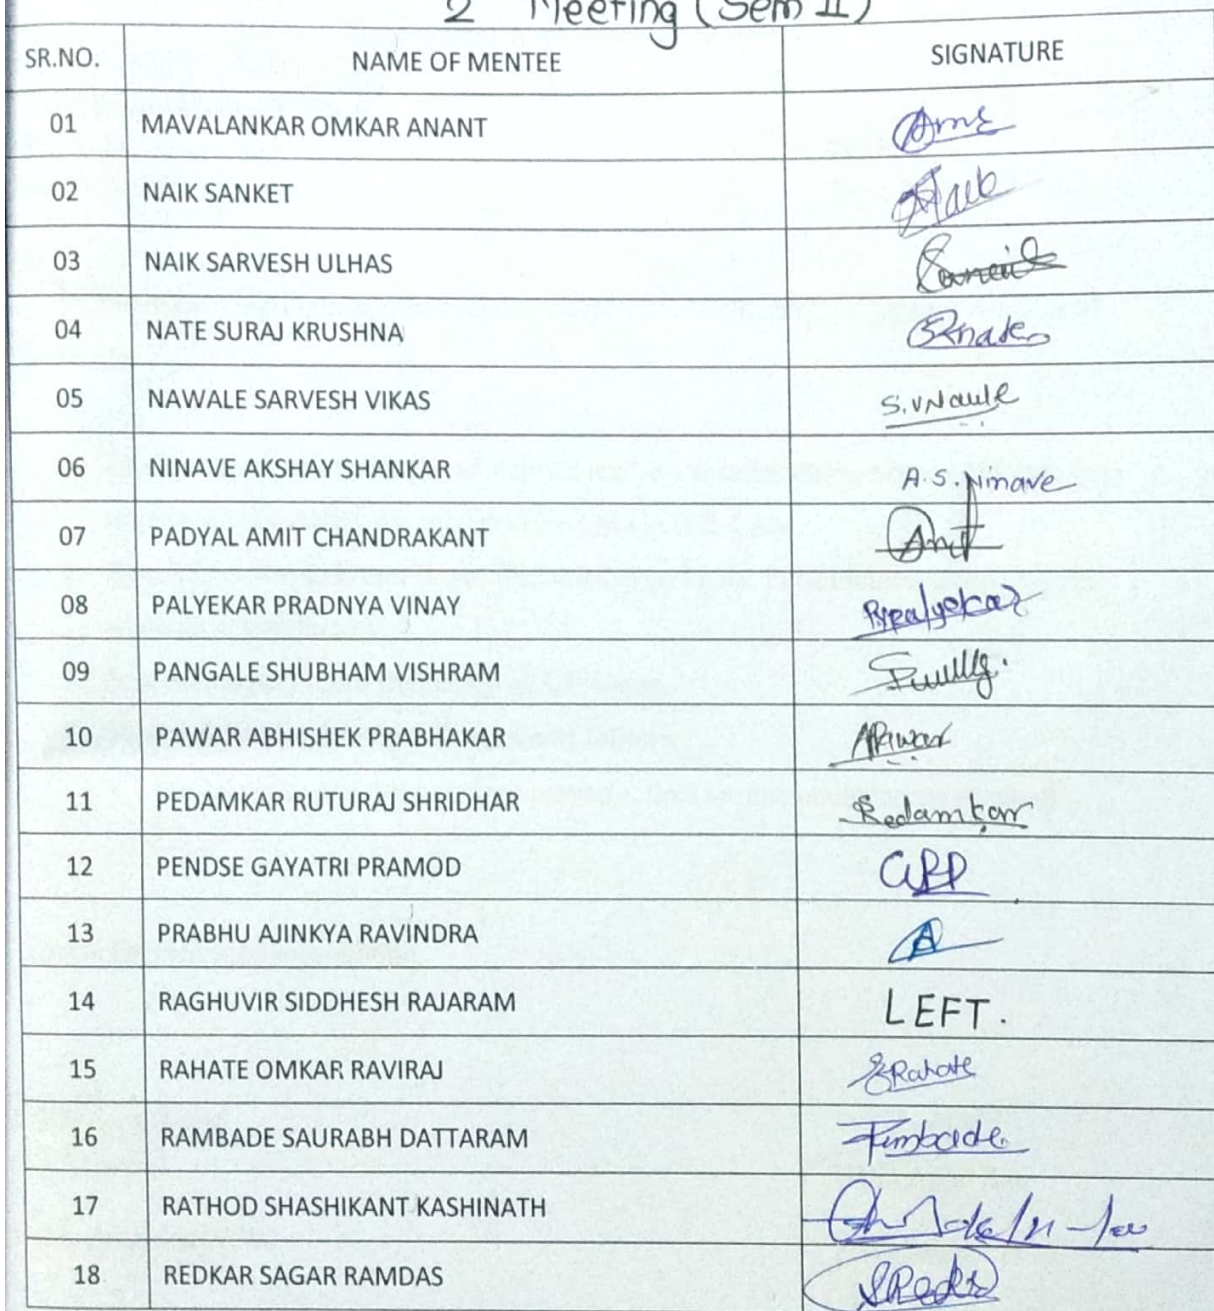 2 Meeting (Sem II)
SR.NO. NAME OF MENTEE SIGNATURE
01 MAVALANKAR OMKAR ANANT
02 NAIK SANKET
03 NAIK SARVESH ULHAS
04 NATE SURAJ KRUSHNA
05 NAWALE SARVESH VIKAS
06 NINAVE AKSHAY SHANKAR A.S.Ninave
07 PADYAL AMIT CHANDRAKANT Amit
08 PALYEKAR PRADNYA VINAY
09 PANGALE SHUBHAM VISHRAM
10 PAWAR ABHISHEK PRABHAKAR
11 PEDAMKAR RUTURAJ SHRIDHAR
12 PENDSE GAYATRI PRAMOD
13 PRABHU AJINKYA RAVINDRA A
14 RAGHUVIR SIDDHESH RAJARAM LEFT.
15 RAHATE OMKAR RAVIRAJ
16 RAMBADE SAURABH DATTARAM
17 RATHOD SHASHIKANT KASHINATH
18 REDKAR SAGAR RAMDAS